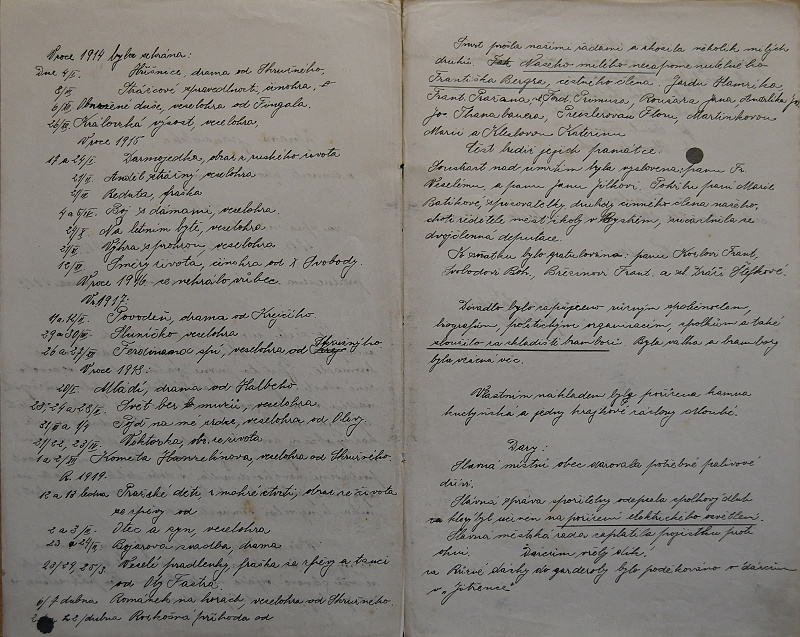 V roce 1914 byla sehrána:
Dne 4/I. Hříšnice, drama od Skružného.
8/III. Strážcové spravedlnosti, činohra,
6/IV. duše, veselohra od Fingala.
26/XII. Královská výsost, veselohra,
V roce 1915
17 a 24/I. Darmojedka, obraz z ruského života
21/II. Anděl strážný, veselohra
2/IV. Reduta, fraška
4 a 5/IV. Boj s dámami, veselohra.
24/V. Na letním bytě, veselohra
21/XI. Výhra sprosou, veselohra.
12/XII. Směry života, činohra od X Svobody.
V roce 1916 se nehrálo vůbec
V r. 1917:
4 a 12/II. Povodeň, drama od Krejčího.
29 a 30/IV. Sluníčko veselohra
26 a 27/XII. Ferdinand spí, veselohra od Skružného
V roce 1918:
20/I. Mládí, drama od Halbeho.
23, 24 a 28/II. Svět bez mužů, veselohra.
31/III a 1/4 Pojď na mé srdce, veselohra od Olivy.
21/22, 23/IX. Viktorka, obr. ze života
1 a 2/XII. Kometa Hanzelínova, veselohra od Skružného.
R. 1919.
12 a 13 ledna Pražské děti z mokré čtvrti, obraz ze života
se zpěvy od
2 a 3/II. Otec a syn, veselohra
23 a 24/II. svatba, drama
23/24, 25/3. Veselé pradlenky, fraška se zpěvy a tanci
od Ol. Fastra.
6/7 dubna Románek na horách, veselohra od Skružného.
22/dubna Rozkošná příhoda od
Smrt prošla našimi řadami a skosila několik milých
druhů. Našeho milého nezapomenutelného
Františka Bergra, čestného člena. Jardu Hamříka,
Frant. Pražana, Ferd. Primusa, Roušara Jana,
Jos Thanabaura, Preislerovou Floru, Martinkovou
Marii a Kleslovou Kateřinu
Čest budiž jejich památce.
Soustrast nad úmrtím byla vyslovena: panu Fr.
Veselému, a panu Janu Jílkovi. Pohřbu paní Marie
Batíkové, spisovatelky, druhdy činného člena našeho,
choti ředitele měst. školy v Kyském, súčastnila se
dvojčlenná deputace.
K sňatku bylo gratulováno: panu Kozlovi Frant,
Svobodovi Boh., Březinovi Frant. a sl Štěpkové.
Divadlo bylo zapůjčeno různým společnostem,
biografům, politickým organisacím, spolkům a také
sloužilo za skladiště bramborů. Byla válka a brambory
byla vzácná věc.
Vlastním nákladem byly pořízena kamna
kuchyňská a jedny krajkové záclony dlouhé.
Dary:
Slavná místní obec darovala potřebné palivové
dříví.
Slavná správa spořitelny odepsala spolkový dluh
za který byl učiněn na pořízení elektrického osvětlení.
Slavná městská rada zaplatila pojistku proti
ohni. Dárcům vřelý dík!
za Různé dárky do garderoby bylo poděkováno v dárcům
v "Jitřence"